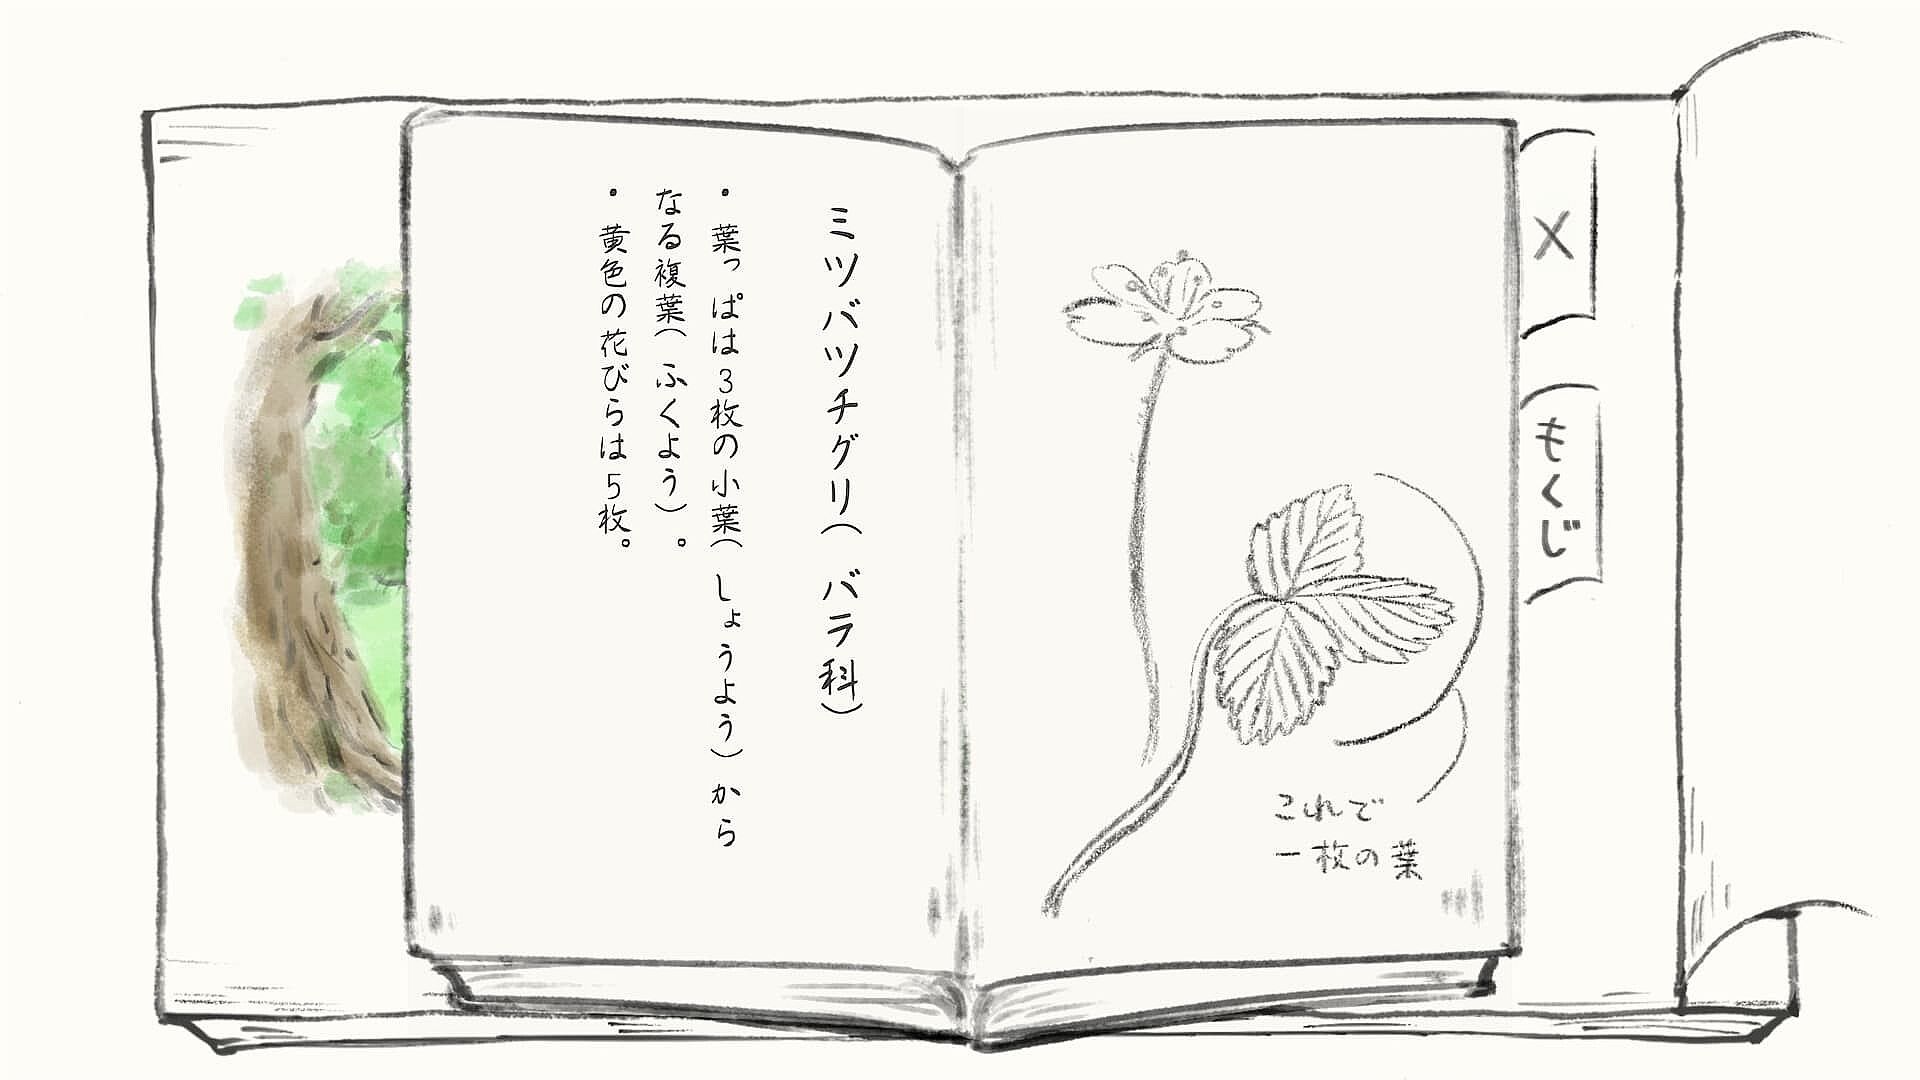 ミツバツチグリ(バラ科)
・葉っぱは3枚の小葉(しょうよう)から
なる複葉(ふくよう)。
・黄色の花びらは5枚。
これで
一枚の葉
×
もくじ